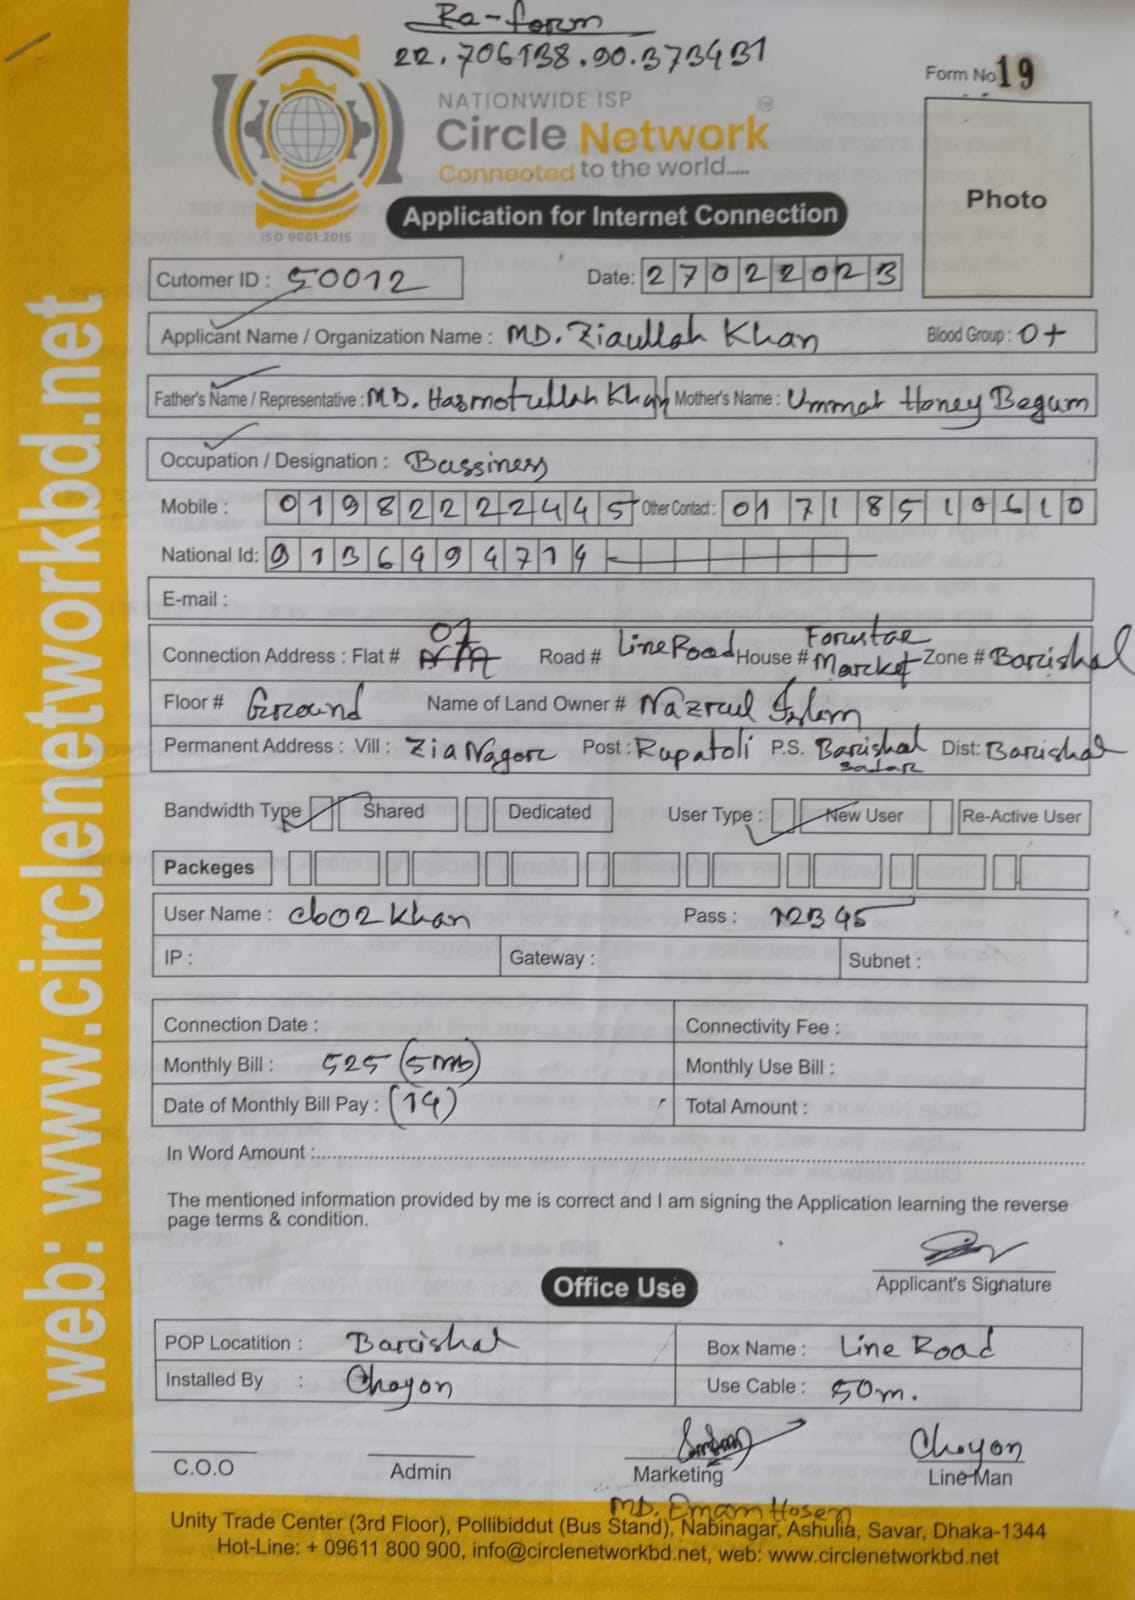 Re-form
22.706138.90.373431
Form No 19
NATIONWIDE ISP
Circle Network
Connected to the world.....
ISO 9001:2015
Application for Internet Connection
Photo
Cutomer ID : 50012
Date: 27022023
Applicant Name / Organization Name : MD. Ziaullah Khan Blood Group : O+
Father's Name / Representative : MD. Hasmotullah Khan Mother's Name : Ummat Honey Begum
Occupation / Designation : Bassiness
Mobile : 01982222445 Other Contact : 01718510610
National Id: 9136494714
E-mail :
Connection Address : Flat # 01 Road # Line Road House # Forustar Marcket Zone # Barishal
Floor # Ground Name of Land Owner # Nazrul Islam
Permanent Address : Vill : Zia Nagor Post : Rupatoli P.S. Barishal sadar Dist: Barishal
Bandwidth Type Shared Dedicated User Type : New User Re-Active User
Packeges
User Name : cb02khan Pass : 12345
IP : Gateway : Subnet :
Connection Date : Connectivity Fee :
Monthly Bill : 525 (5mb) Monthly Use Bill :
Date of Monthly Bill Pay : (14) Total Amount :
In Word Amount :
The mentioned information provided by me is correct and I am signing the Application learning the reverse
page terms & condition.
Applicant's Signature
Office Use
POP Locatition : Barishal Box Name : Line Road
Installed By : Choyon Use Cable : 50m.
Choyon
C.O.O Admin Marketing Line Man
MD. Emam Hosen
Unity Trade Center (3rd Floor), Pollibiddut (Bus Stand), Nabinagar, Ashulia, Savar, Dhaka-1344
Hot-Line: + 09611 800 900, info@circlenetworkbd.net, web: www.circlenetworkbd.net
web: www.circlenetworkbd.net